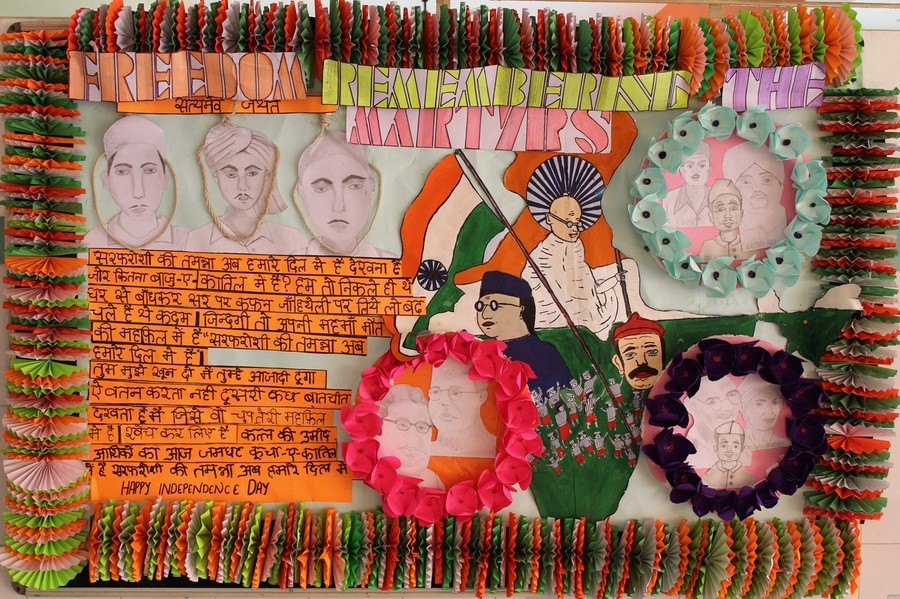 FREEDOM
REMEMBERING THE
MARTYRS
सत्यमेव जयते
सरफरोशी की तमन्ना अब हमारे दिल मे है देखना है
जोर कितना बाजु-ए-कातिल मे है? हम तो निकले ही थे
घर से बाँधकर सर पर कफन जाँहथेली पर लिये लो बढ
चले है ये कदम। जिन्दगी तो अपनी महमाँ मौत
की महफिल मे है "सरफरोशी की तमन्ना अब
हमारे दिल मे है।
तुम मुझे खून दो मै तुम्हे आजादी दूगा
ऐ वतन करता नही दूसरी कुछ बातचीत
देखता हूँ मैं जिसे वो चुप तेरी महफिल
मे है। खैंच कर लाई है कत्ल की उमीद
आशिकों का आज जमघट कूचा-ए-कातिल
मे है सरफरोशी की तमन्ना अब हमारे दिल मे
HAPPY INDEPENDENCE DAY